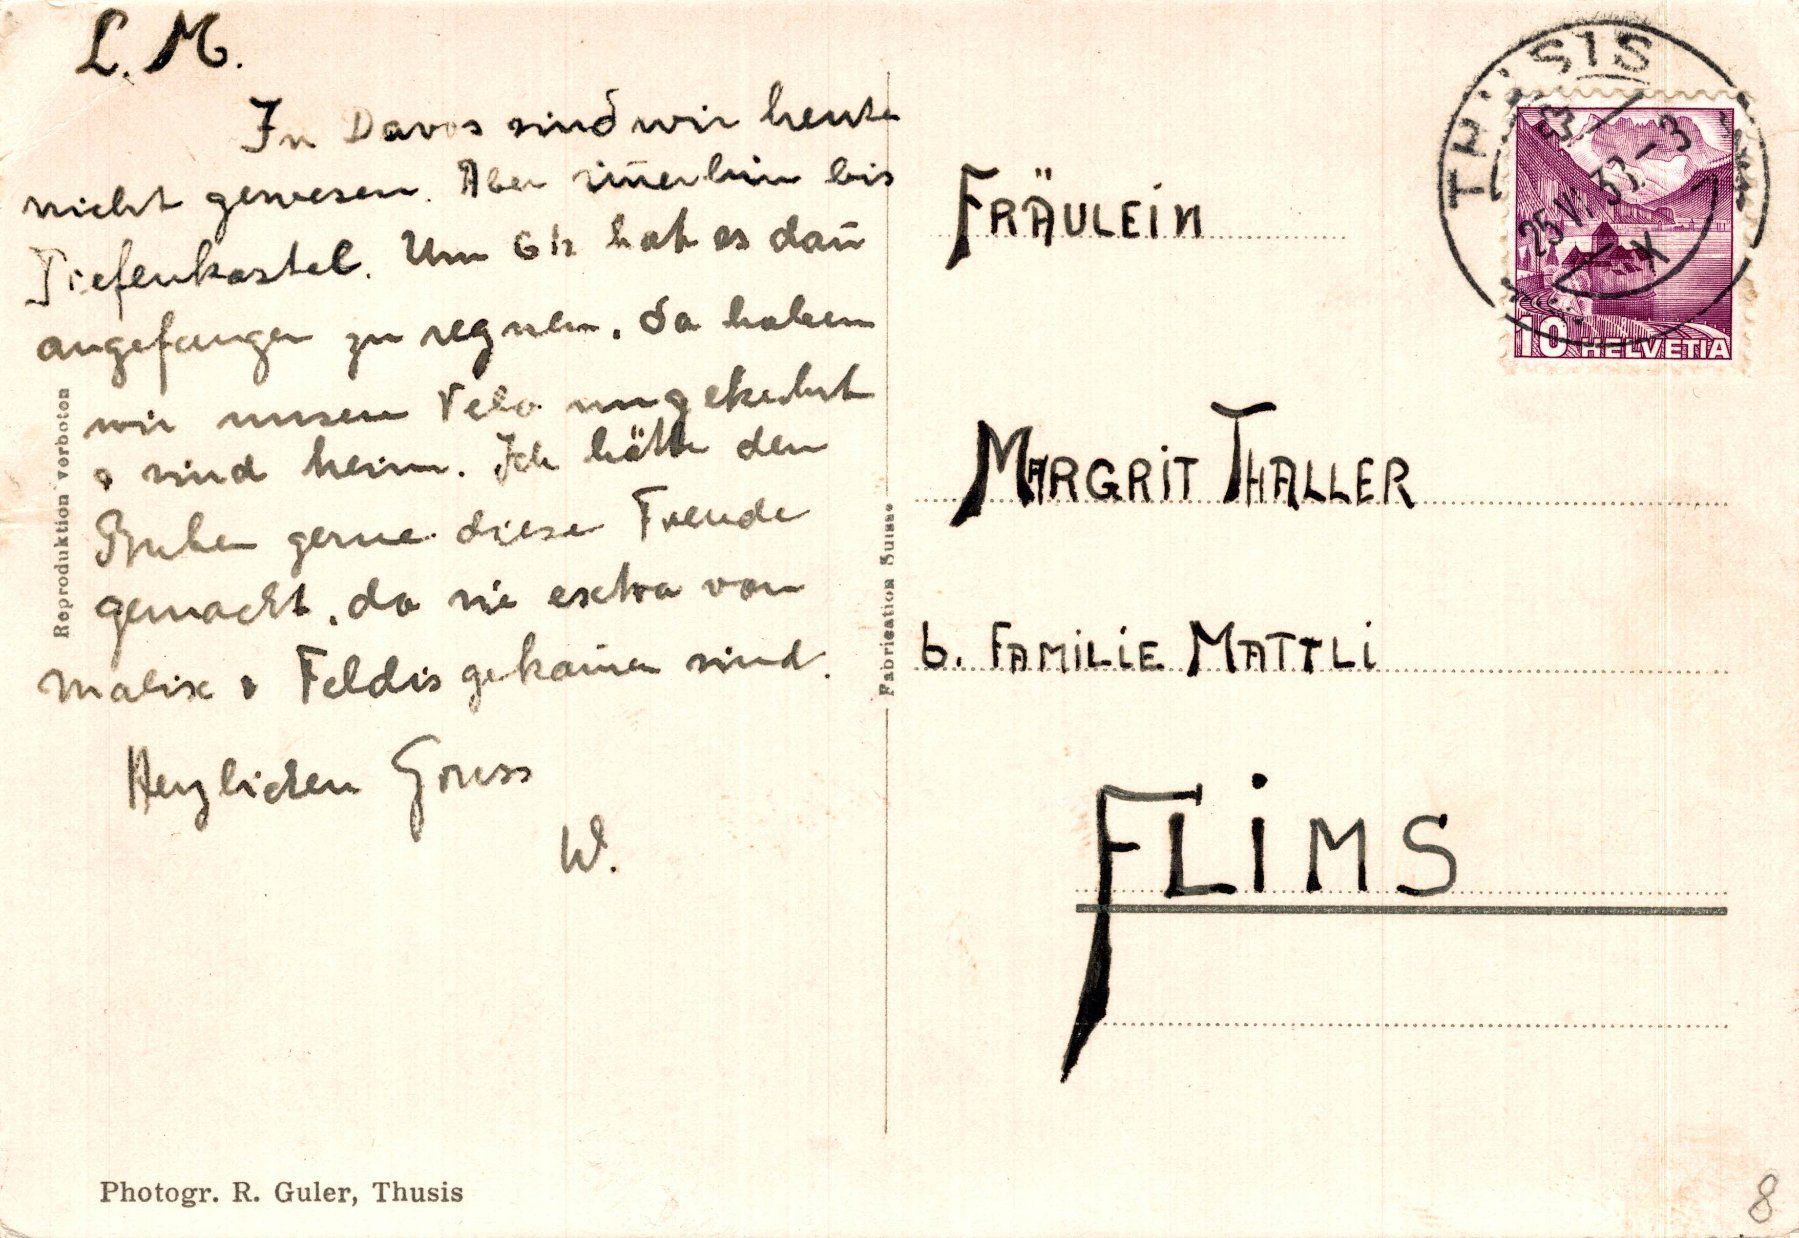 L. M.
In Davos sind wir heute
nicht gewesen. Aber im̄erhin bis
Tiefenkastel. Um 6 ½ hat es dan̄
angefangen zu regnen, da haben
wir unsere Velo umgekehrt
& sind heim. Ich hätte den
Buben gerne diese Freude
gemacht, da sie extra von
Malix & Feldis gekom̄en sind.
Herzlichen Gruss
W.
Reproduktion verboten
Photogr. R. Guler, Thusis
Fabrication Suisse
THUSIS
25.VI.33.-3
X
10 HELVETIA
FRÄULEIN
MARGRIT THALLER
b. FAMILIE MATTLI
FLIMS
8